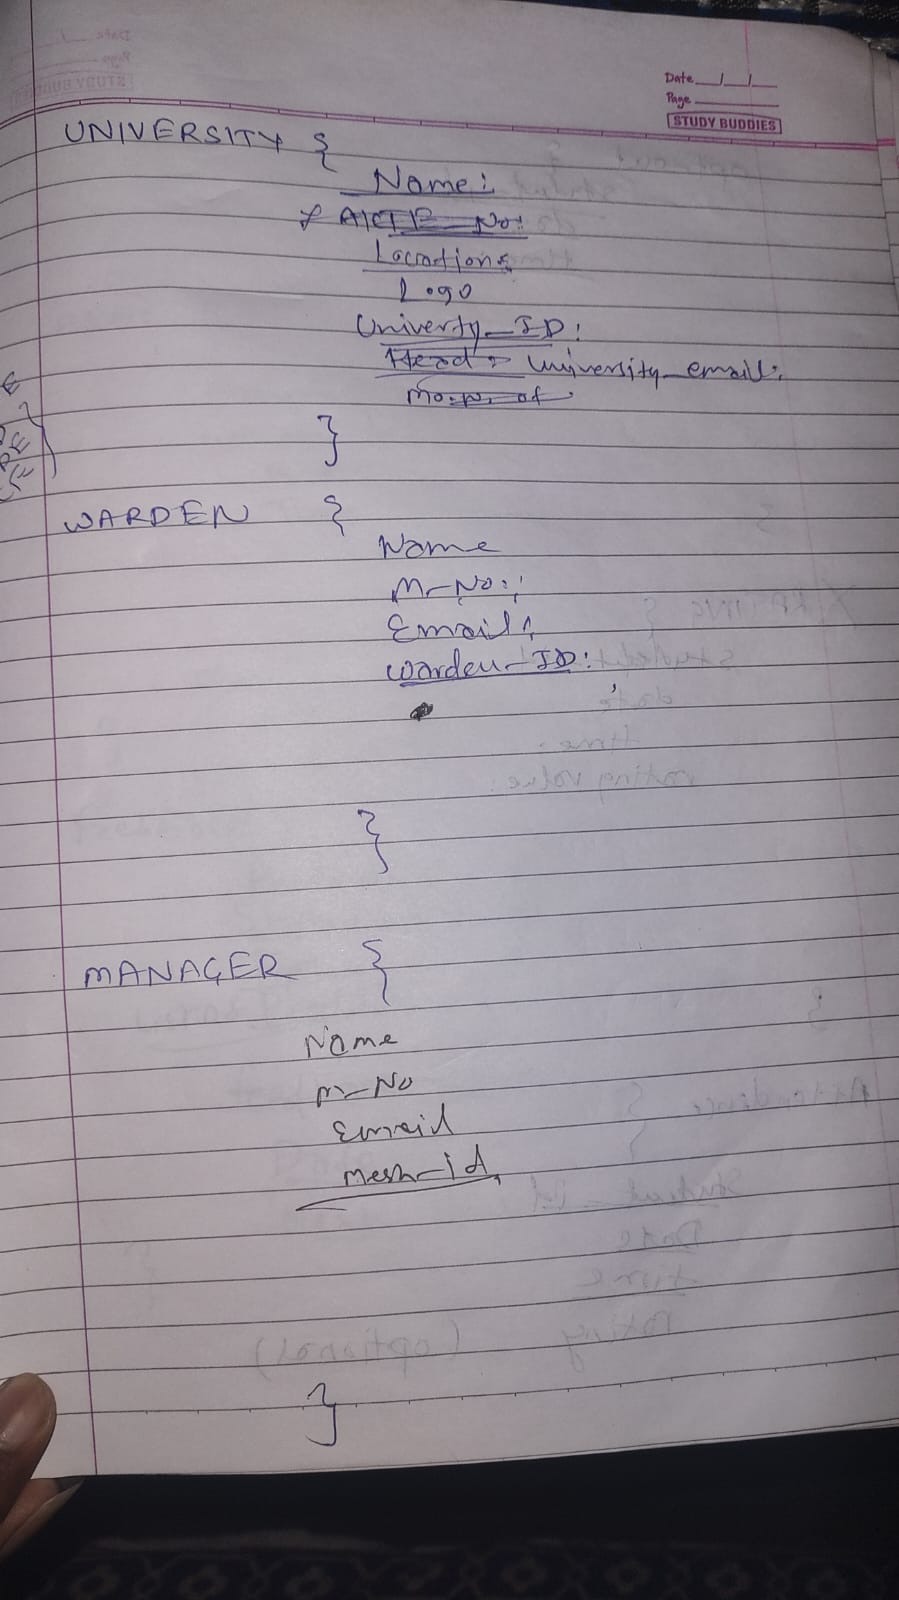 Date / /
Page
STUDY BUDDIES
UNIVERSITY {
Name:
AICTE No:
Locations
Logo
Univerty_ID:
Head University_email:
}
WARDEN {
Name
M-No:
Email:
Warden-ID:
}
MANAGER {
Name
M-No
Email
Mesh-id
}